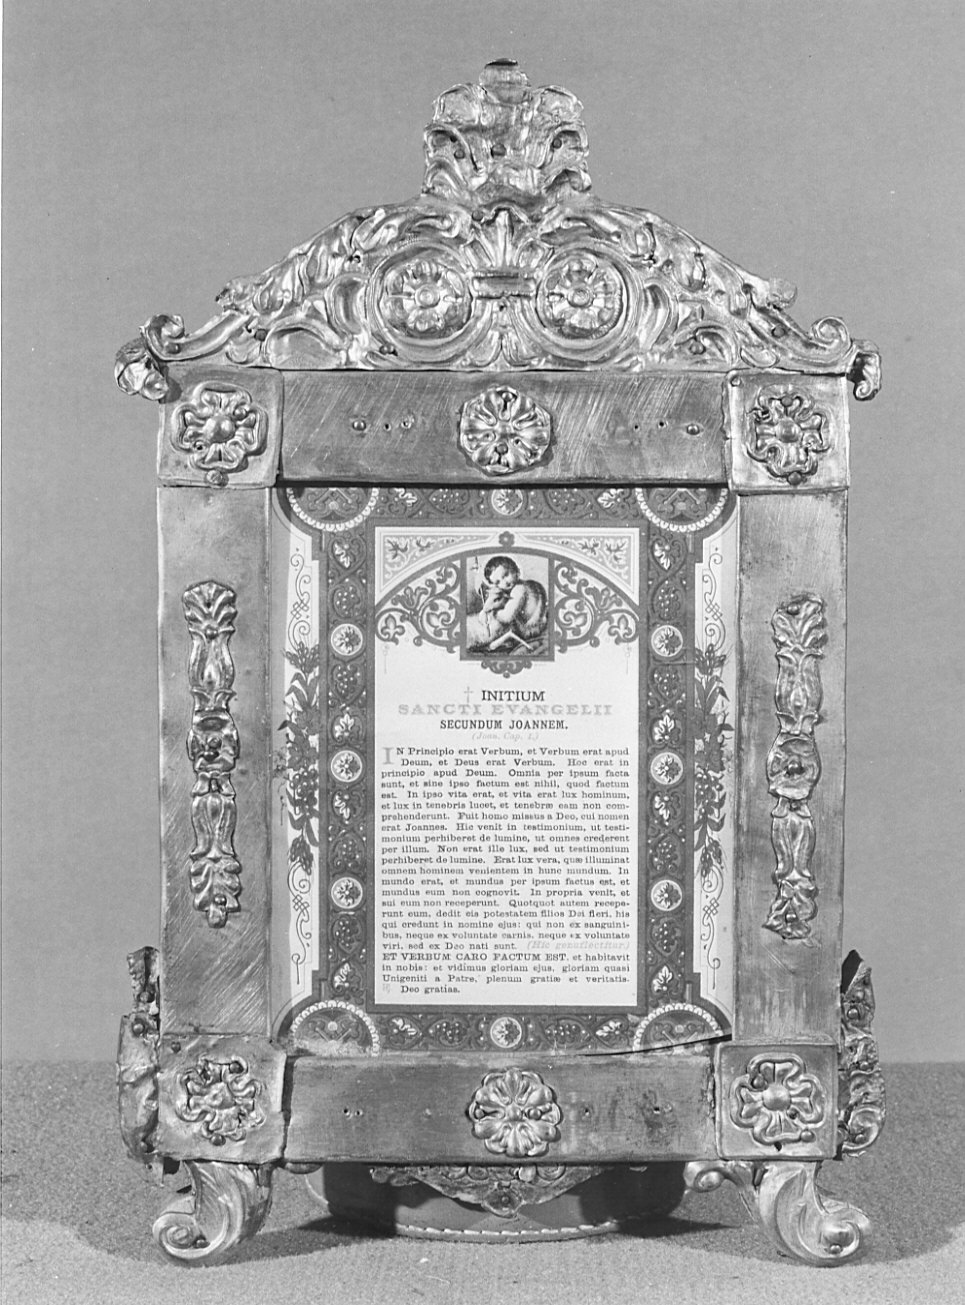 † INITIUM
SANCTI EVANGELII
SECUNDUM JOANNEM.
(Joan. Cap. 1.)
IN Principio erat Verbum, et Verbum erat apud
Deum, et Deus erat Verbum. Hoc erat in
principio apud Deum. Omnia per ipsum facta
sunt, et sine ipso factum est nihil, quod factum
est. In ipso vita erat, et vita erat lux hominum,
et lux in tenebris lucet, et tenebræ eam non com-
prehenderunt. Fuit homo missus a Deo, cui nomen
erat Joannes. Hic venit in testimonium, ut testi-
monium perhiberet de lumine, ut omnes crederent
per illum. Non erat ille lux, sed ut testimonium
perhiberet de lumine. Erat lux vera, quæ illuminat
omnem hominem venientem in hunc mundum. In
mundo erat, et mundus per ipsum factus est, et
mundus eum non cognovit. In propria venit, et
sui eum non receperunt. Quotquot autem recepe-
runt eum, dedit eis potestatem filios Dei fieri, his
qui credunt in nomine ejus: qui non ex sanguini-
bus, neque ex voluntate carnis, neque ex voluntate
viri, sed ex Deo nati sunt. (Hic genuflectitur.)
ET VERBUM CARO FACTUM EST, et habitavit
in nobis: et vidimus gloriam ejus, gloriam quasi
Unigeniti a Patre, plenum gratiæ et veritatis.
℟ Deo gratias.